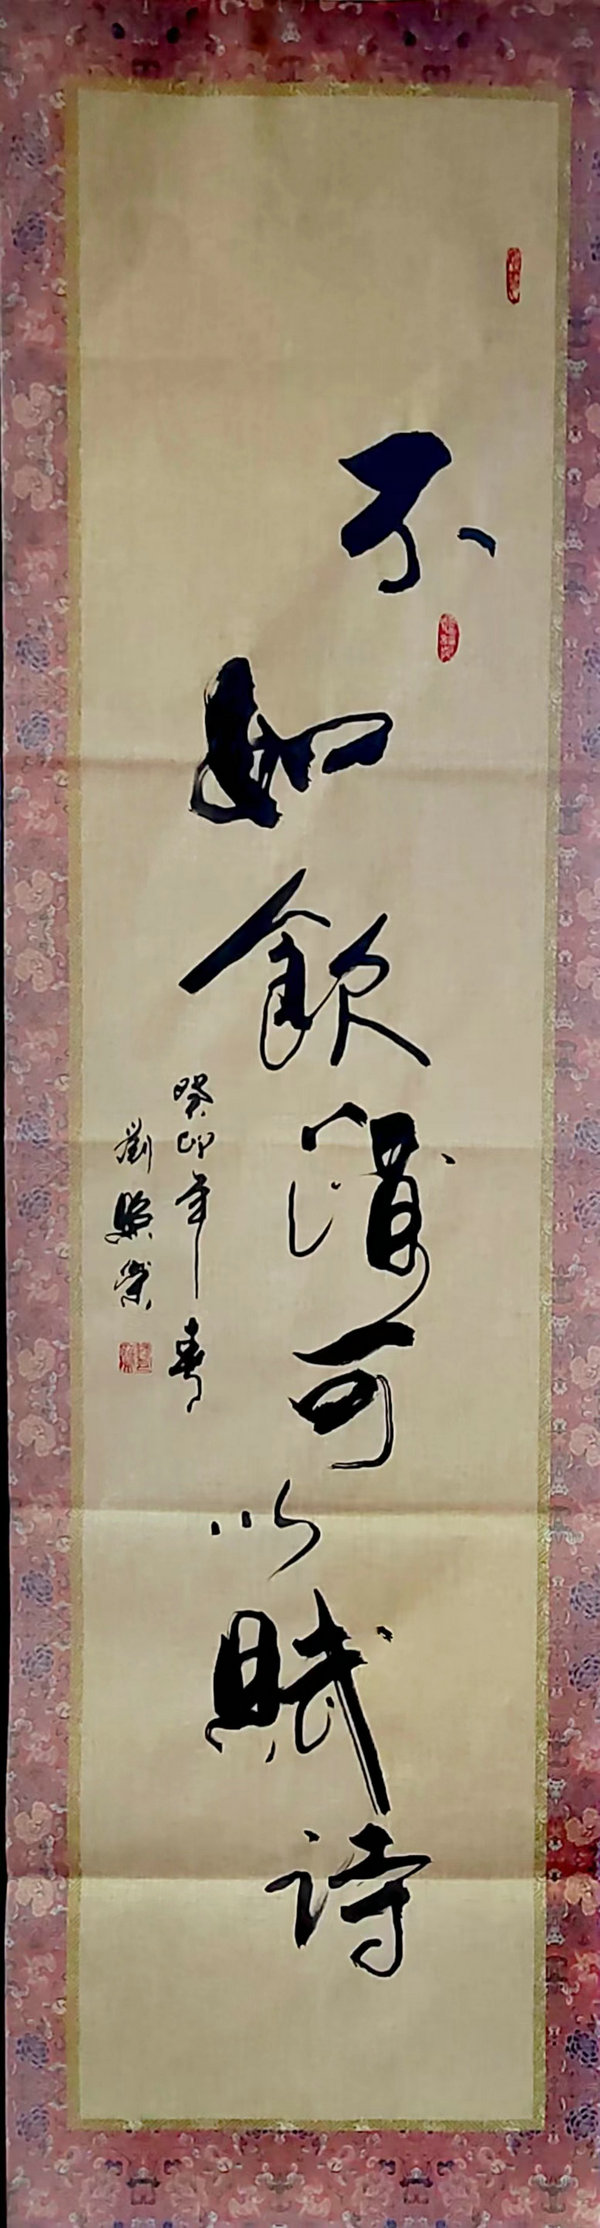 不如飲酒可以賦詩
癸卯年春
劉